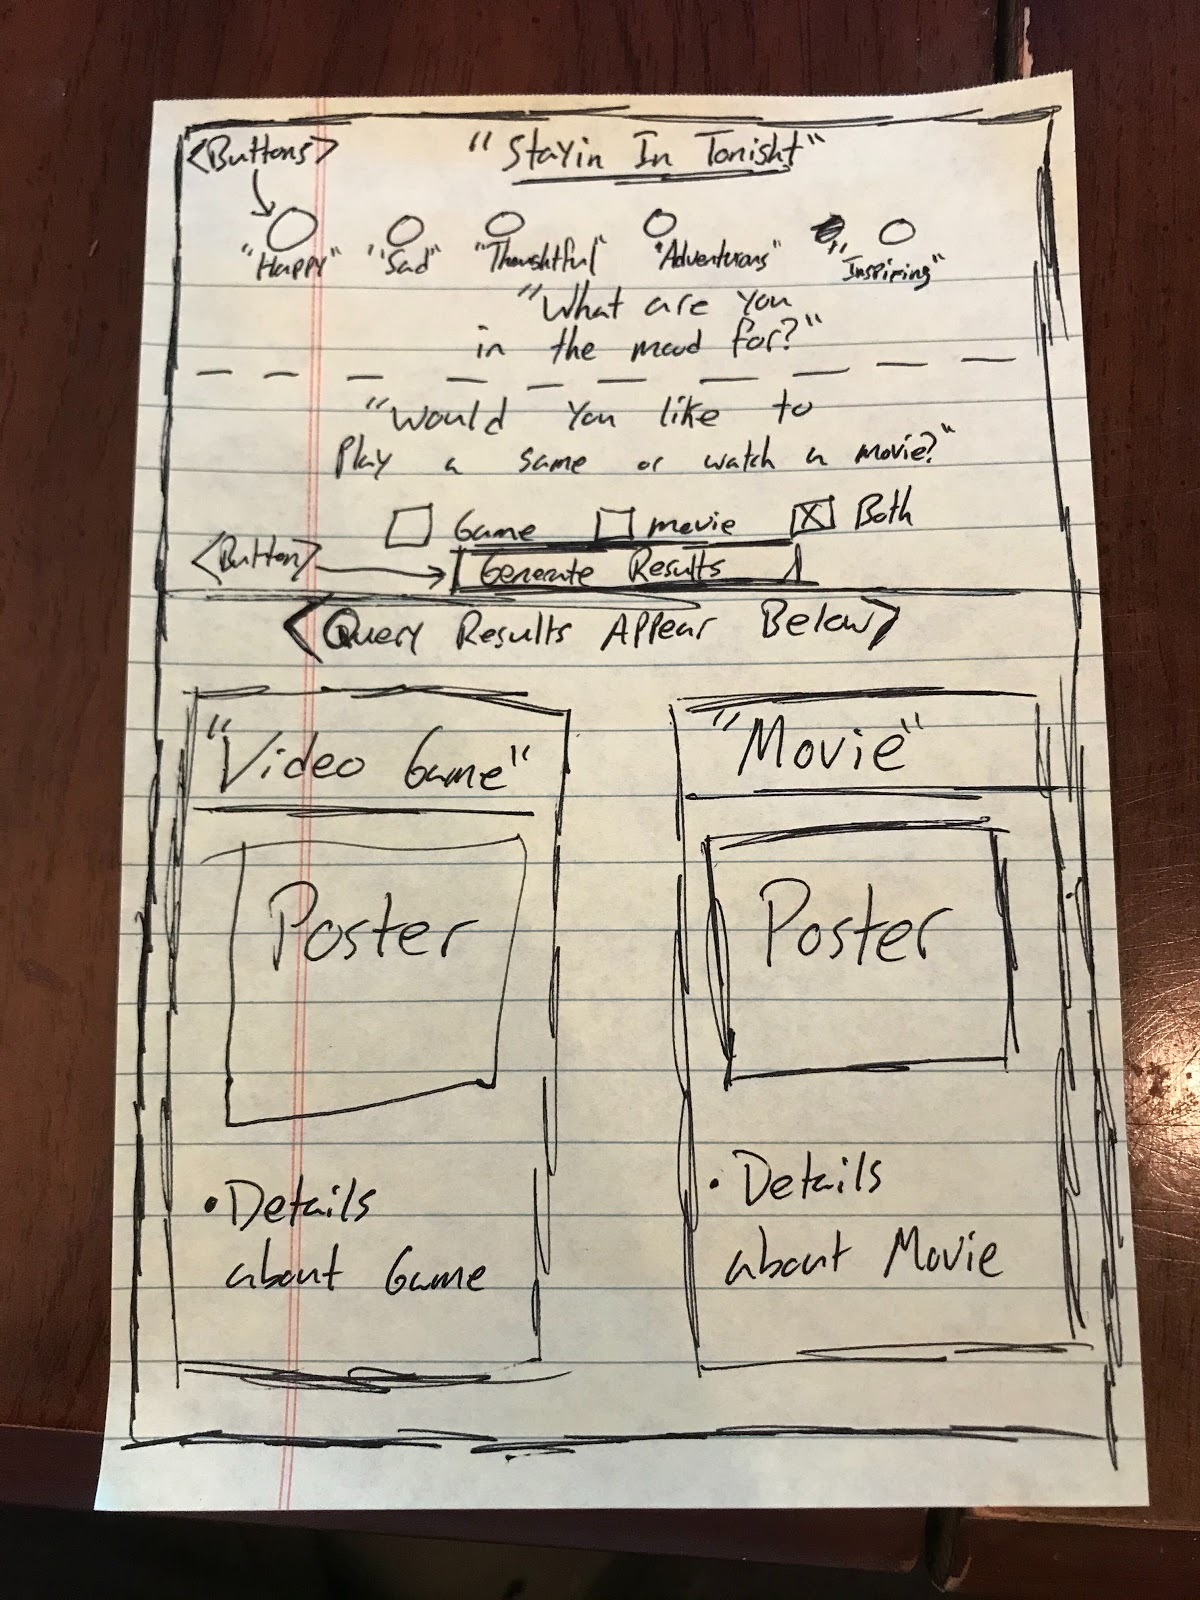 <Buttons> "Stayin In Tonight"
"Happy" "Sad" "Thoughtful" "Adventurous" "Inspiring"
"What are you
in the mood for?"
"Would You like to
Play a game or watch a movie?"
Game movie Both
<Button> Generate Results
<Query Results Appear Below>
"Video Game" "Movie"
Poster Poster
• Details
about Game
• Details
about Movie